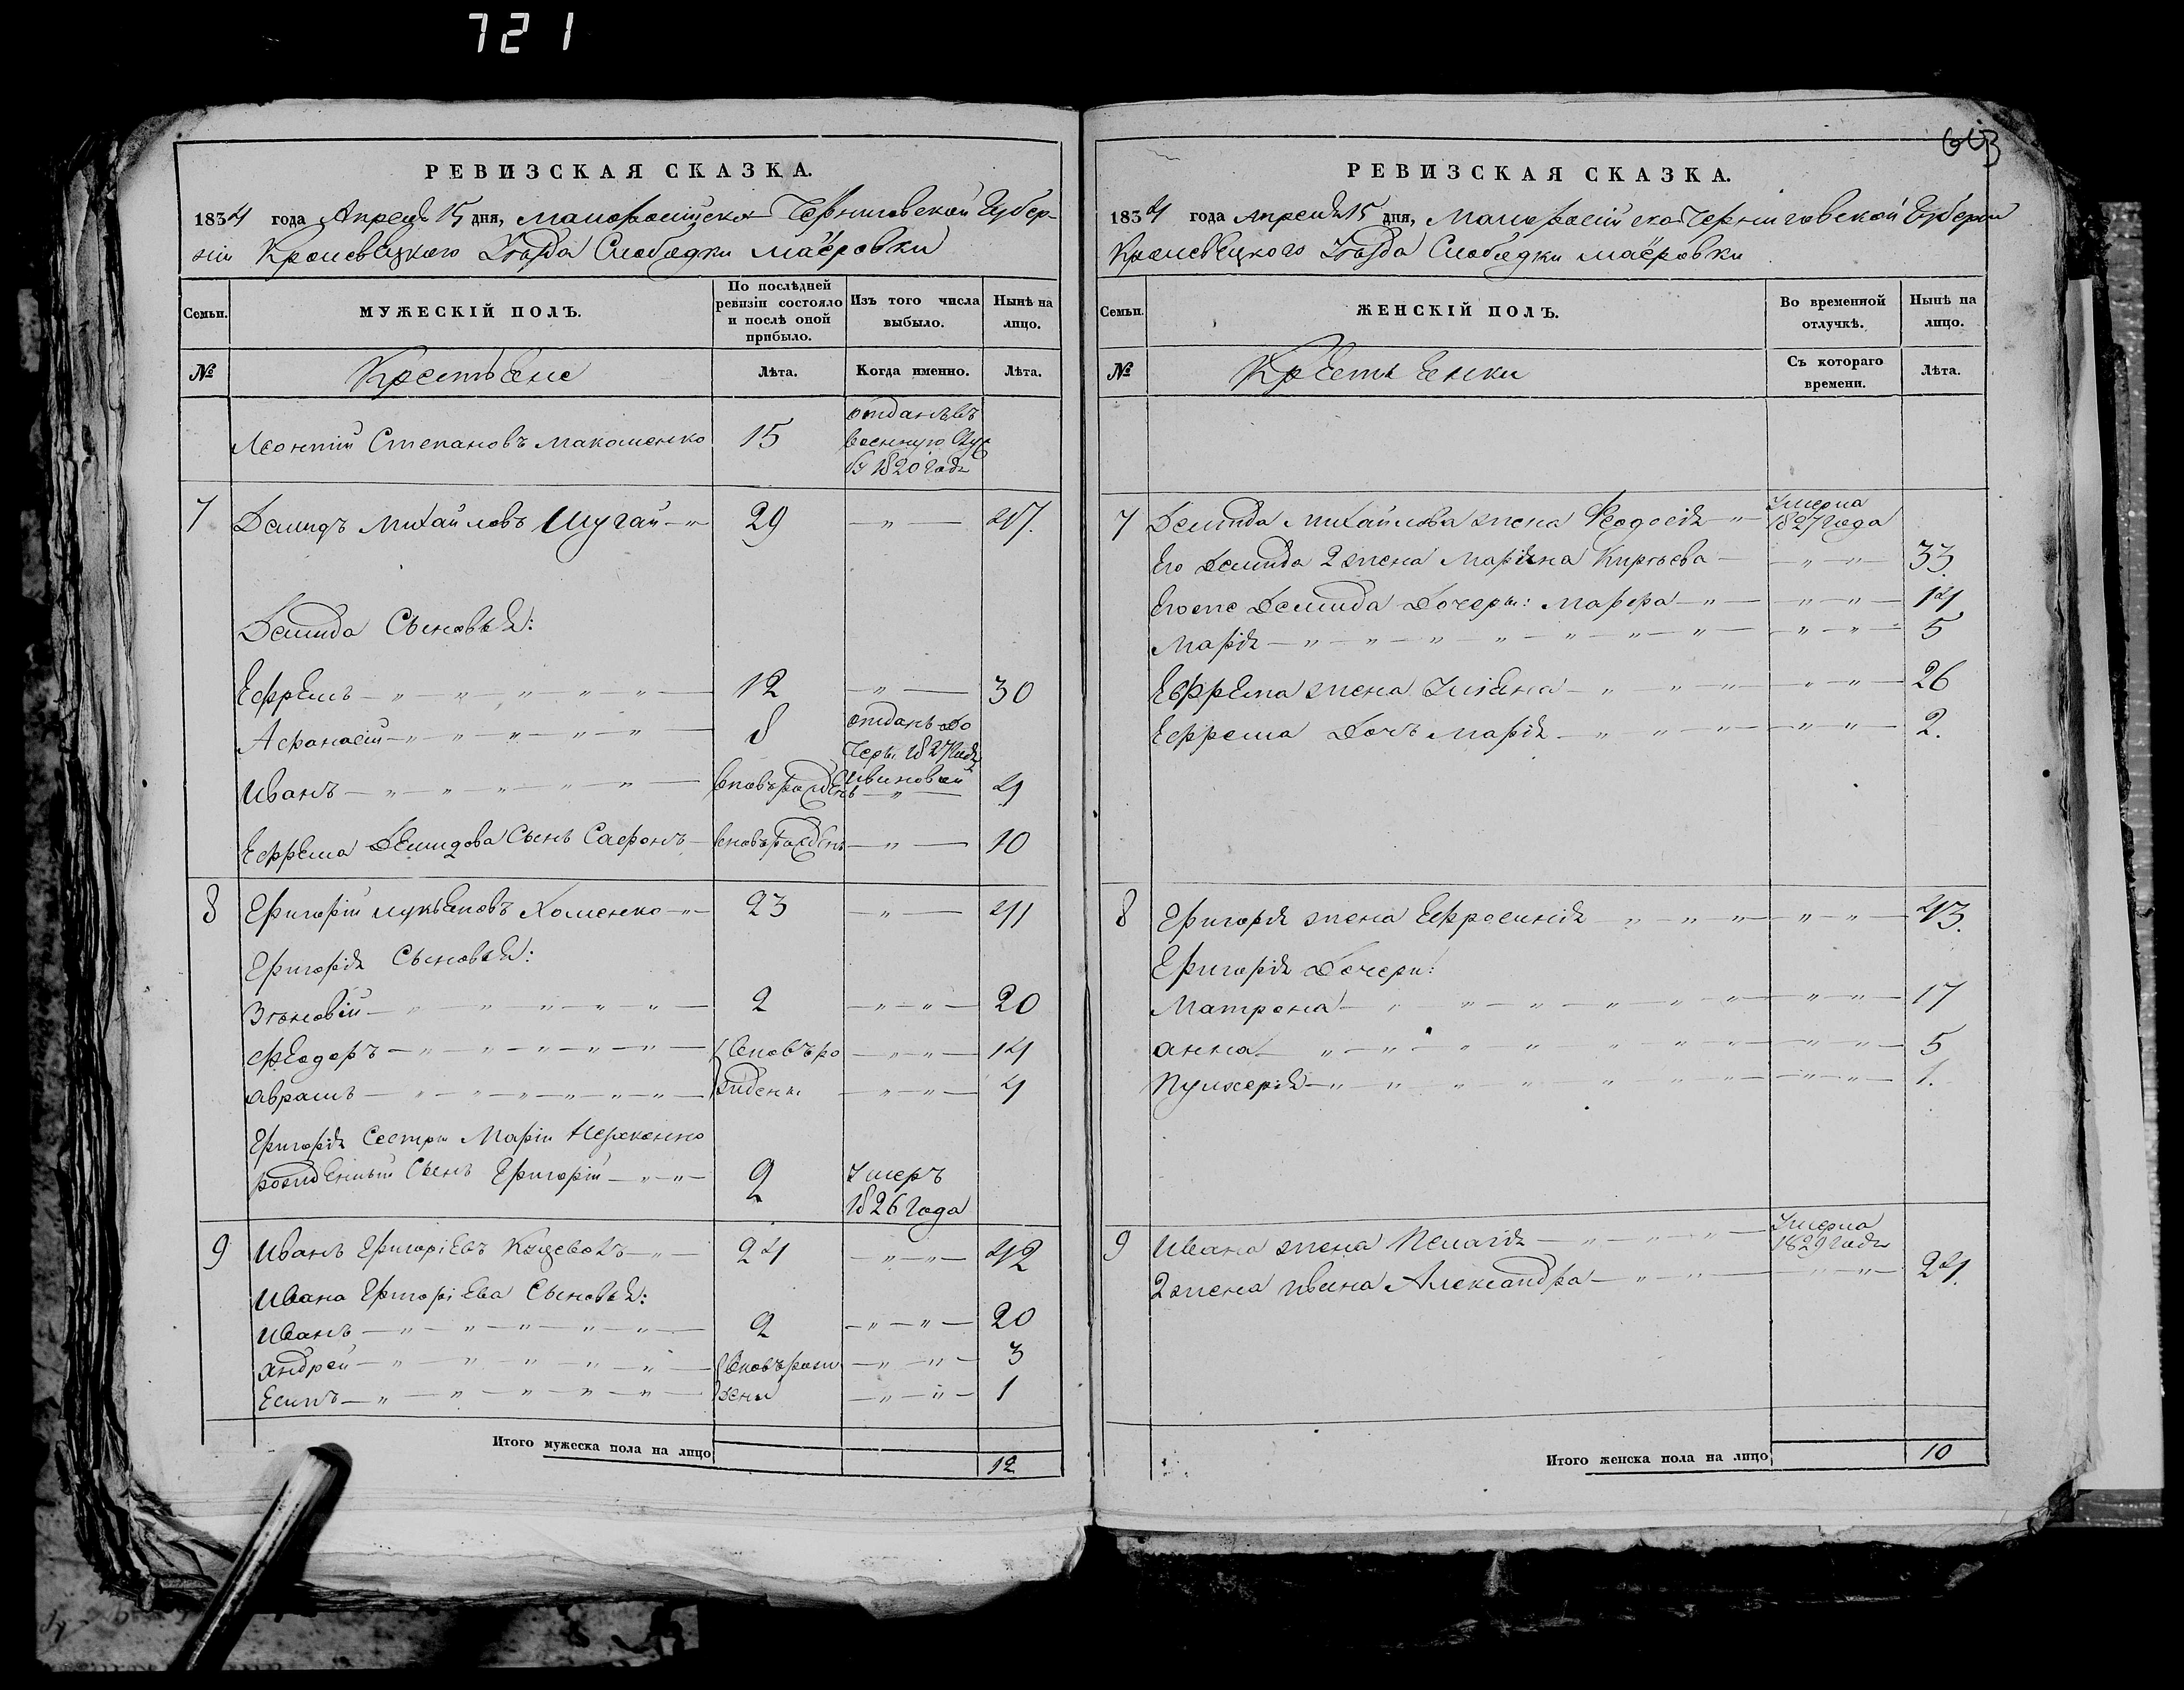 721
РЕВИЗСКАЯ СКАЗКА.
1834 года Апреля 15 дня, Малоросійской Черниговской Губер-
ніи Кролевецкого Уезда Слободки Маёровки
Семьи.
МУЖЕСКІЙ ПОЛЪ.
По послѣдней ревизіи состояло и послѣ оной прибыло.
Изъ того числа выбыло.
Нынѣ на лицо.
№
Крестьене
Лѣта.
Когда именно.
Лѣта.
Леонтій Степановъ Макошенко 15 отданъ въ
военную
въ 1820 годе
7 Демидъ Михайловъ Шугай 29 — " — 47.
Демида Сыновья:
Ефремъ 12 — " — 30
Афонасій 8 отданъ
1827 годе
Иванъ вновь рожденъ — " — 4
Ефрема Демидова Сынъ Сафонъ вновь рожденъ — " — 10
8 Григорій Лукьеновъ Хоменко 23 — " — 41
Григорія Сыновья:
Зѣновій 2 — " — " — 20
Феодоръ вновь ро 14
Аврамъ ждены 4
Григорія Сестры Маріи Незаконно
рожденный Сынъ Григорій 2 Умеръ
1826 года
9 Иванъ Григоріевъ 24 — " — " — 42
Ивана Григоріева Сыновья:
Иванъ 2 — " — " — 20
Андрей вновь рож 3
Есипъ дены 1
Итого мужеска пола на лицо 12
663
РЕВИЗСКАЯ СКАЗКА.
1834 года Апреля 15 дня, Малоросійско Черниговской Губерніи
Кролевецкого Уезда Слободки Маёровки
Семьи.
ЖЕНСКІЙ ПОЛЪ.
Во временной отлучкѣ.
Нынѣ на лицо.
№
Крестьенки
Съ котораго времени.
Лѣта.
7 Демида Михайлова жена Феодосія Умерла
1827 года
Его Демида 2 жена Маріяна Киріева 33
Егоже Демида Дочери: Марфа 14
Марія 5
Ефрема жена Улиена 26
Ефрема Дочь Марія 2.
8 Григорія жена Ефросинія 43.
Григорія Дочери:
Матрона 17
Анна 5
Пулхерія 1.
9 Ивана жена Пелагія Умерла
1829 годе
2 жена Ивана Александра 24.
Итого женска пола на лицо 10